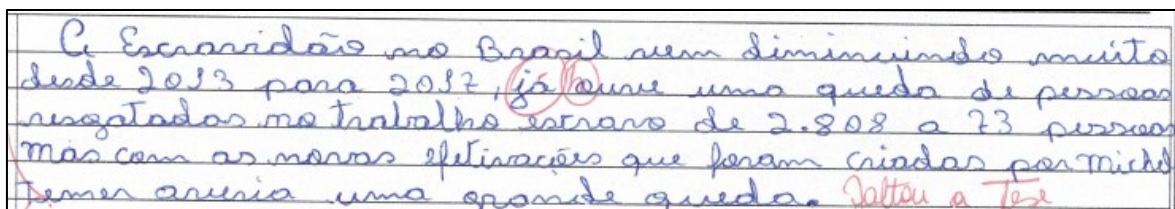 A Escravidão no Brasil vem diminuindo muito
desde 2013 para 2017, já ouve uma queda de pessoas
resgatadas no trabalho escravo de 2.808 a 73 pessoas
mas com as novas efetivações que foram criadas por Michel
temer averia uma grande queda. Faltou a Tese